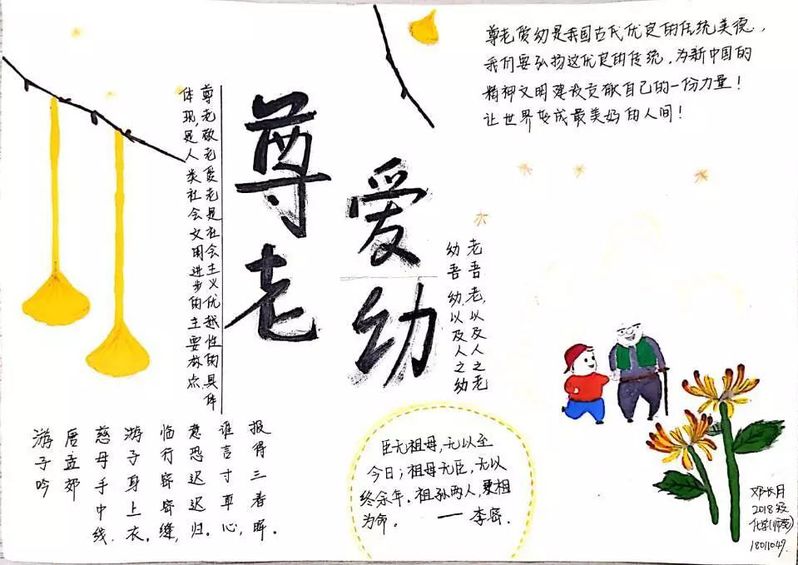 尊老
爱幼
尊老爱幼是我国古代优良的传统美德，
我们要弘扬这优良的传统，为新中国的
精神文明建设贡献自己的一份力量！
让世界变成最美好的人间！
尊老敬老爱老是社会主义优越性的具体
体现，是人类社会文明进步的主要点
老吾老，以及人之老
幼吾幼以及人之幼
游子吟
唐孟郊
慈母手中线
游子身上衣。
临行密密缝，
意恐迟迟归。
谁言寸草心，
报得三春晖。
臣无祖母，无以至
今日；祖母无臣，无以
终余年。祖孙两人，更相
为命。——李密
长月
2018级
化学(师范)
18011047